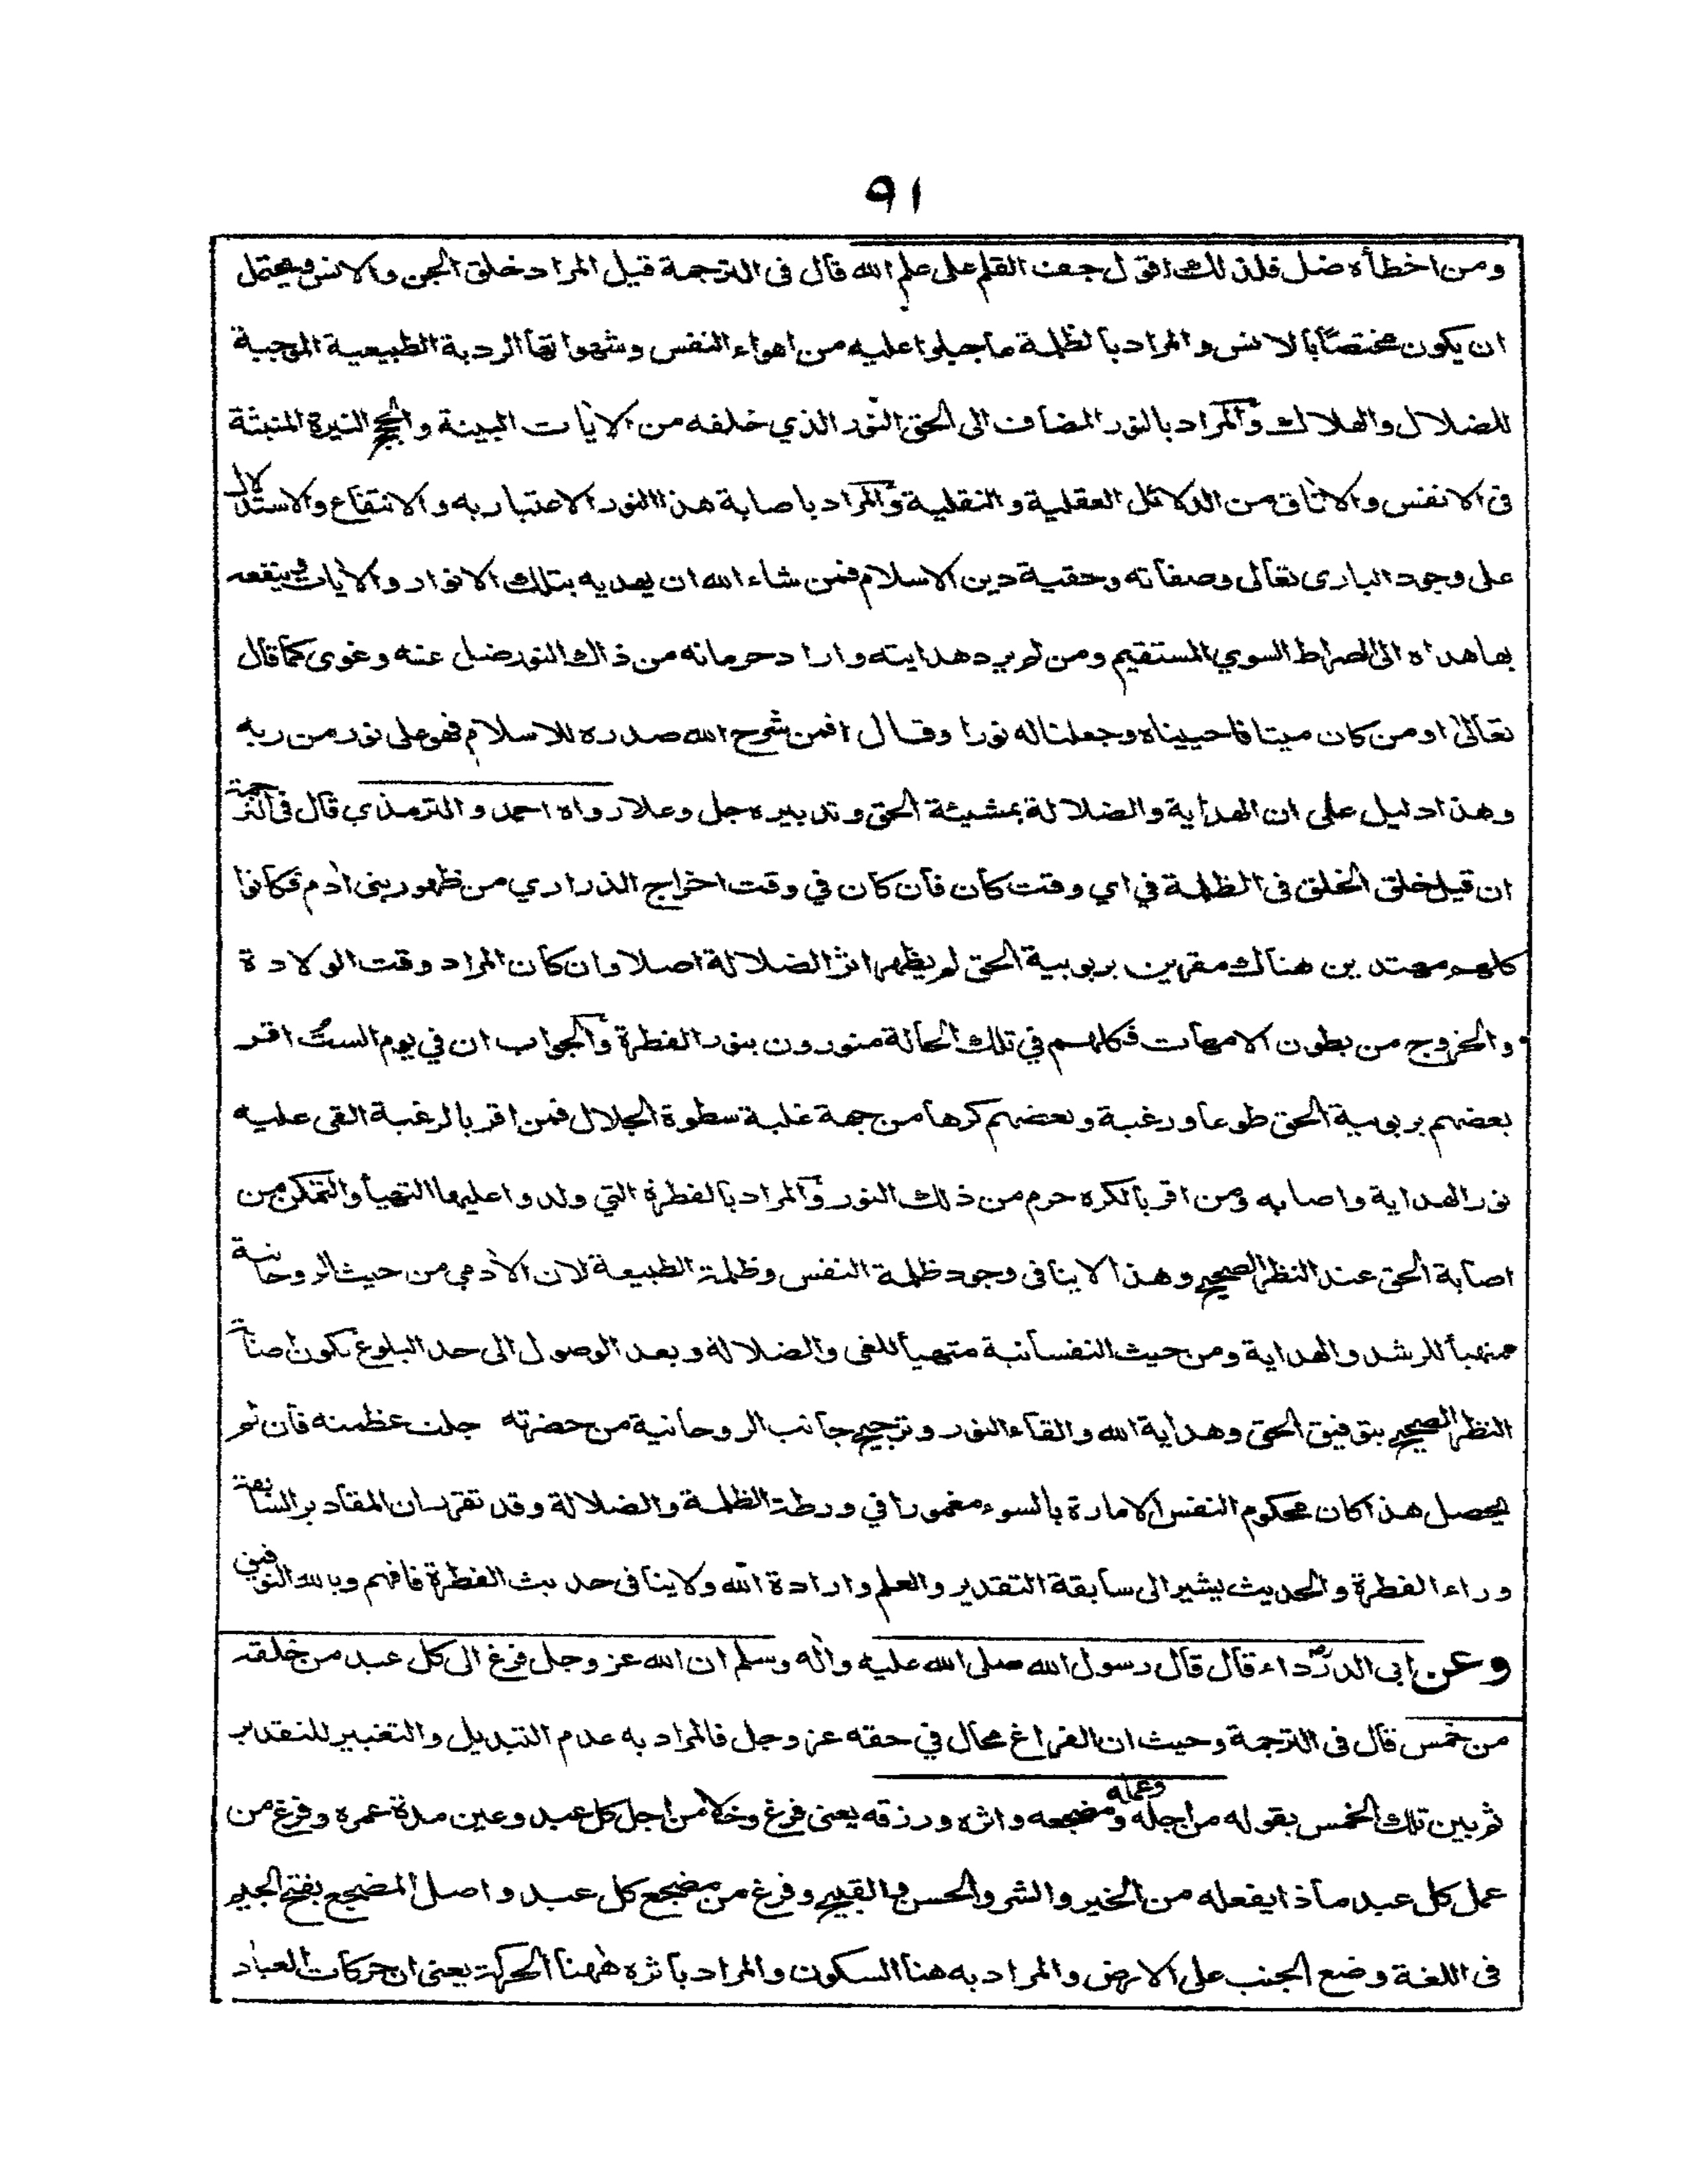 ٩١
ومن اخطأه ضل فلذلك اقول جف القلم على علم الله قال فى الترجمة قيل المراد خلق الجن والانس ويحتمل
ان يكون مختصًا بالانس والمراد بالظلمة ما جبلوا عليه من اهواء النفس وشهواتها الردية الطبيعية الموجبة
للضلال والهلاك والمراد بالنور المضاف الى الحق النور الذي خلفه من الاٰيات البينة والحجج النيرة المنبثة
فى الانفس والاٰفاق من الدلائل العقلية والنقلية والمراد باصابة هذا النور الاعتبار به والانتفاع والاستدلال
على وجود البارى تعالى وصفاته وحقية دين الاسلام فمن شاء الله ان يهديه بتلك الانوار والاٰيات وينفعه
بها هداه الى الصراط السوي المستقيم ومن لم يرد هدايته واراد حرمانه من ذاك النور ضل عنه وغوى كما قال
تعالىٰ اومن كان ميتا فاحييناه وجعلنا له نورا وقال افمن شرح الله صدره للاسلام فهو على نور من ربه
وهذا دليل على ان الهداية والضلالة بمشيئة الحق وتدبيره جل وعلا رواه احمد والترمذي قال فى الترجمة
ان قيل خلق الخلق فى الظلمة في اي وقت كان فان كان في وقت اخراج الذراري من ظهور بنى اٰدم فكانوا
كلهم مهتدين هنالك مقرين بربوبية الحق لم يظهر اثر الضلالة اصلا وان كان المراد وقت الولادة
والخروج من بطون الامهات فكلهم في تلك الحالة منورون بنور الفطرة والجواب ان في يوم الستُ اقر
بعضهم بربوبية الحق طوعا ورغبة وبعضهم كرها من جهة غلبة سطوة الجلال فمن اقر بالرغبة القى عليه
نور الهداية واصابه ومن اقر بالكره حرم من ذلك النور والمراد بالفطرة التي ولدوا عليها التهيأ والتمكن من
اصابة الحق عند النظر الصحيح وهذا لا ينافى وجود ظلمة النفس وظلمة الطبيعة لان الاٰدمي من حيث الروحانية
متهيأ للرشد والهداية ومن حيث النفسانية متهيأ للغى والضلالة وبعد الوصول الى حد البلوغ تكون اصابة
النظر الصحيح بتوفيق الحق وهداية الله والقاء النور وترجيح جانب الروحانية من حضرته جلت عظمته فان لم
يحصل هذا كان محكوم النفس الامارة بالسوء مغمورا في ورطة الظلمة والضلالة وقد تقرر ان المقادير السابقة
وراء الفطرة والحديث يشير الى سابقة التقدير والعلم وارادة الله ولا ينافى حديث الفطرة فافهم وبالله التوفيق
وعن ابى الدرداء قال قال رسول الله صلى الله عليه واٰله وسلم ان الله عز وجل فرغ الى كل عبد من خلقه
من خمس قال فى الترجمة وحيث ان الفراغ محال في حقه عز وجل فالمراد به عدم التبديل والتغيير للتقدير
ثم بين تلك الخمس بقوله من اجله وعمله ومضجعه واثره ورزقه يعنى فرغ وخلا من اجل كل عبد وعين مدة عمره وفرغ من
عمل كل عبد ماذا يفعله من الخير والشر والحسن والقبيح وفرغ من مضجع كل عبد واصل المضجع بفتح الجيم
فى اللغة وضع الجنب على الارض والمراد به هنا السكون والمراد باثره ههنا الحركة يعنى ان حركات العباد